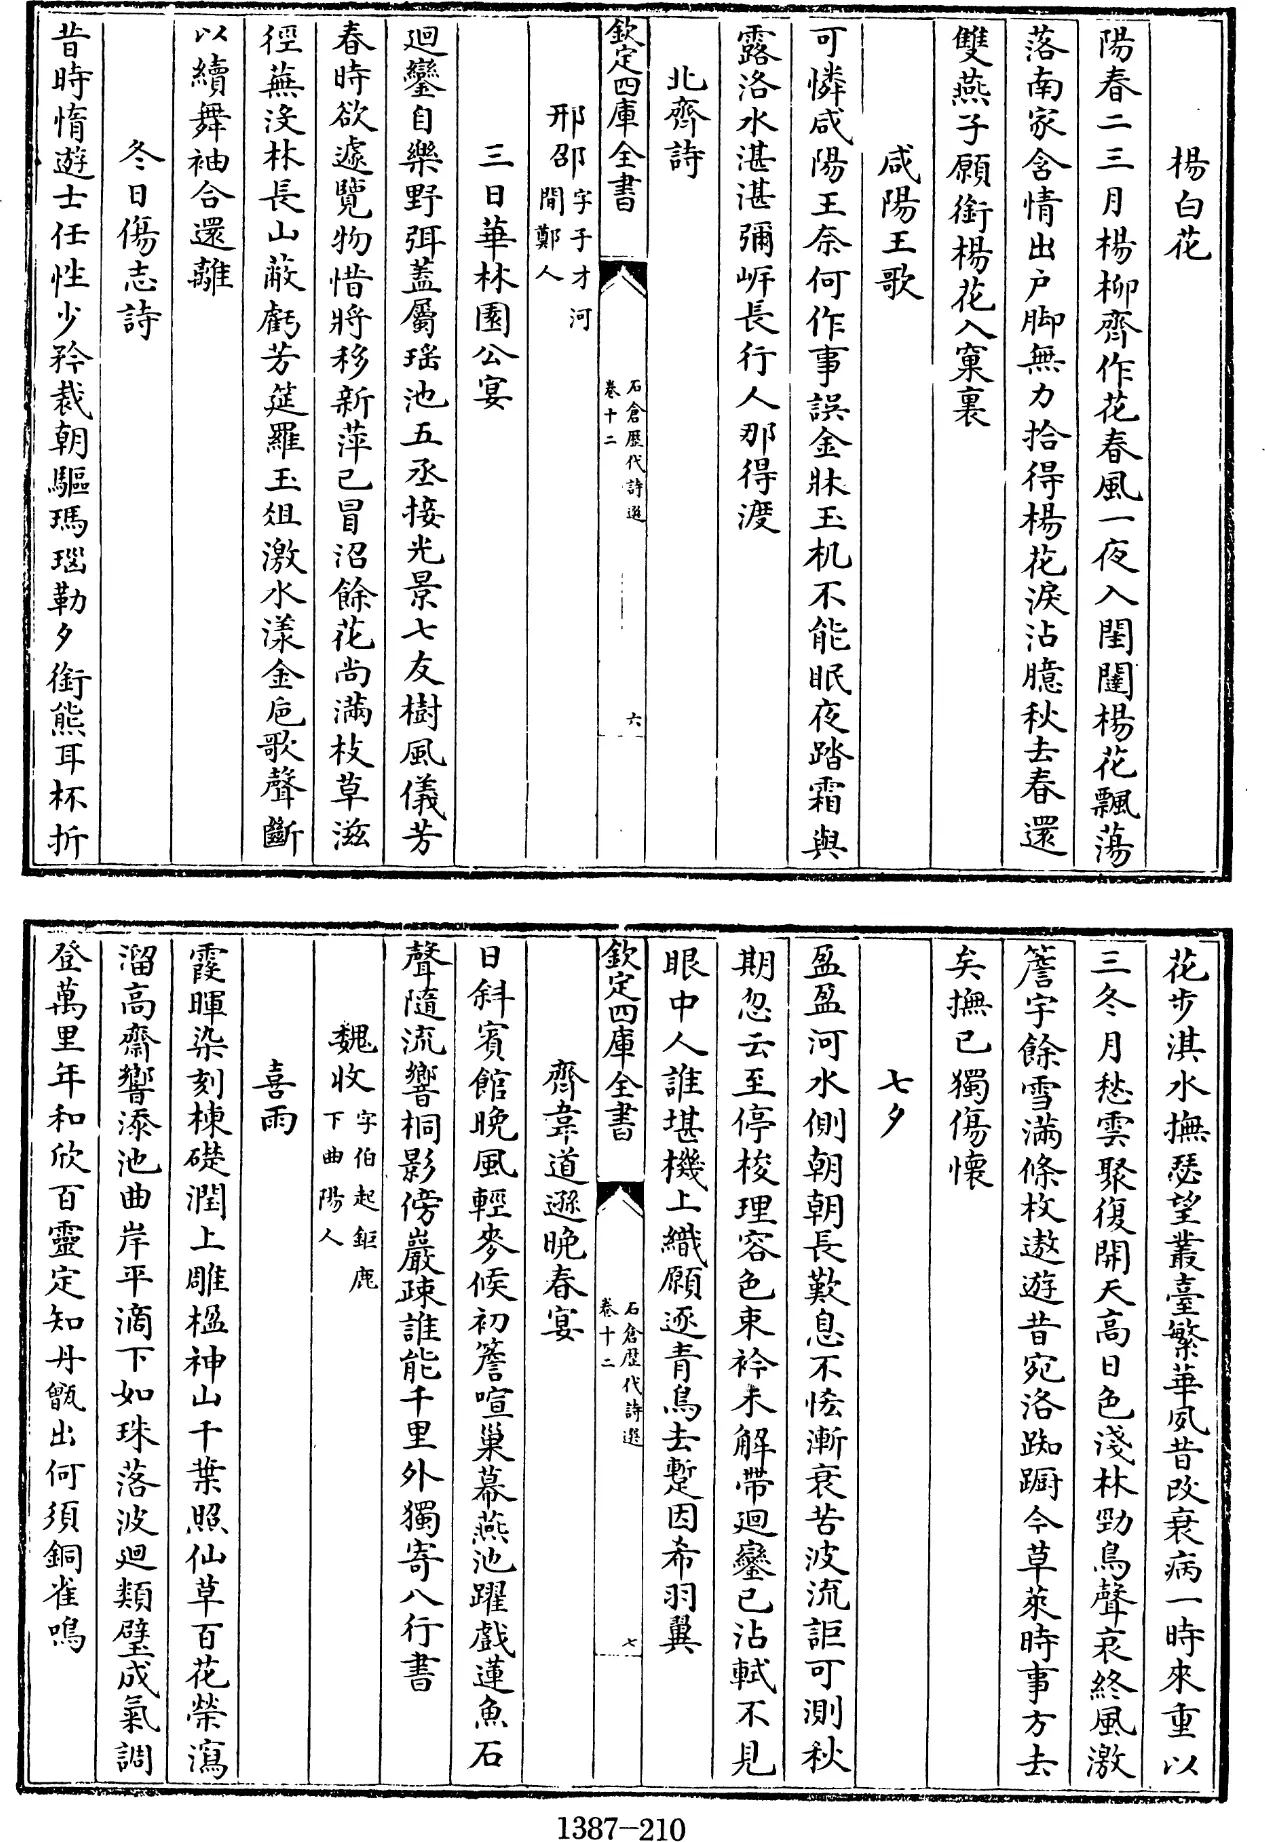 楊白花
陽春二三月楊柳齊作花春風一夜入閨闥楊花飄蕩
落南家含情出戶脚無力拾得楊花淚沾臆秋去春還
雙燕子願銜楊花入窠裏
咸陽王歌
可憐咸陽王奈何作事誤金牀玉机不能眠夜踏霜與
露洛水湛湛彌岍長行人那得渡
北齊詩
欽定四庫全書
石倉歷代詩選
卷十二
六
邢邵字子才河
間鄭人
三日華林園公宴
迴鑾自樂野弭蓋屬瑶池五丞接光景七友樹風儀芳
春時欲遽覽物惜將移新萍已冒沼餘花尚滿枝草滋
徑蕪沒林長山蔽虧芳筵羅玉俎激水漾金巵歌聲斷
以續舞袖合還離
冬日傷志詩
昔時惰遊士任性少矜裁朝驅瑪瑙勒夕銜熊耳杯折
花步淇水撫瑟望叢臺繁華夙昔改衰病一時來重以
三冬月愁雲聚復開天高日色淺林勁鳥聲哀終風激
簷宇餘雪滿條枚遨遊昔宛洛踟蹰今草萊時事方去
矣撫已獨傷懷
七夕
盈盈河水側朝朝長歎息不恡漸衰苦波流詎可測秋
期忽云至停梭理容色束衿未解帶迴鑾已沾軾不見
眼中人誰堪機上織願逐青鳥去蹔因希羽翼
欽定四庫全書
石倉歷代詩選
卷十二
七
齊韋道遜晚春宴
日斜賓館晚風輕麥候初簷喧巢幕燕池躍戲蓮魚石
聲隨流響桐影傍巖疎誰能千里外獨寄八行書
魏收字伯起鉅鹿
下曲陽人
喜雨
霞暉染刻棟礎潤上雕楹神山千葉照仙草百花榮瀉
溜高齋響添池曲岸平滴下如珠落波迴類璧成氣調
登萬里年和欣百靈定知丹甑出何須銅雀鳴
1387-210